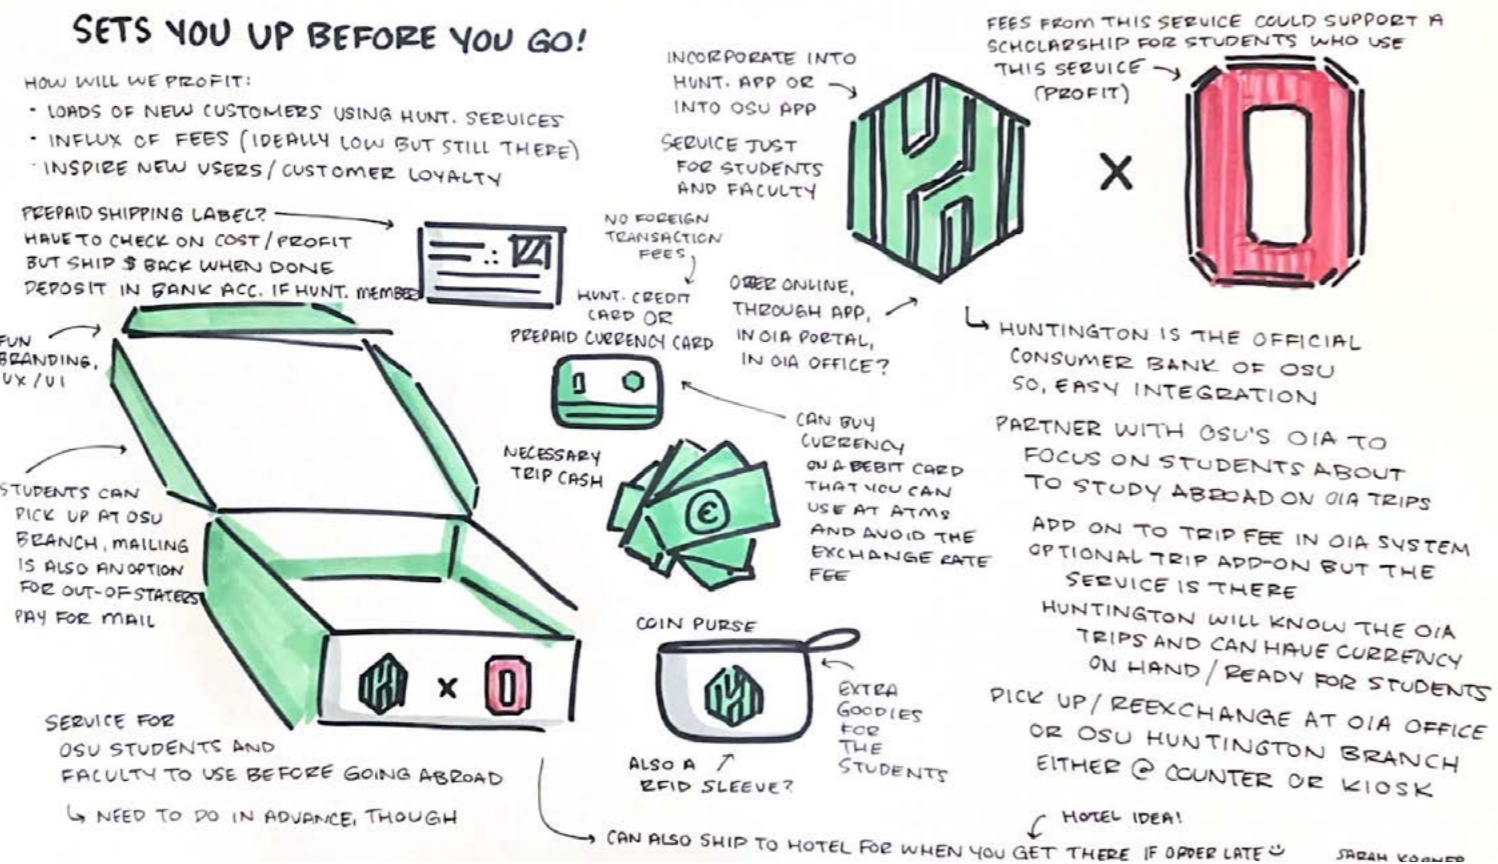 SETS YOU UP BEFORE YOU GO!
HOW WILL WE PROFIT:
• LOADS OF NEW CUSTOMERS USING HUNT. SERVICES
• INFLUX OF FEES (IDEALLY LOW BUT STILL THERE)
• INSPIRE NEW USERS/CUSTOMER LOYALTY
PREPAID SHIPPING LABEL?
HAVE TO CHECK ON COST/PROFIT
BUT SHIP $ BACK WHEN DONE
DEPOSIT IN BANK ACC. IF HUNT. MEMBER
FUN
BRANDING,
UX/UI
STUDENTS CAN
PICK UP AT OSU
BRANCH, MAILING
IS ALSO AN OPTION
FOR OUT-OF-STATERS
PAY FOR MAIL
SERVICE FOR
OSU STUDENTS AND
FACULTY TO USE BEFORE GOING ABROAD
↳ NEED TO DO IN ADVANCE, THOUGH
X
INCORPORATE INTO
HUNT. APP OR
INTO OSU APP
SERVICE JUST
FOR STUDENTS
AND FACULTY
NO FOREIGN
TRANSACTION
FEES
HUNT. CREDIT
CARD OR
PREPAID CURRENCY CARD
ORDER ONLINE,
THROUGH APP,
IN OIA PORTAL,
IN OIA OFFICE?
NECESSARY
TRIP CASH
€
CAN BUY
CURRENCY
ON A DEBIT CARD
THAT YOU CAN
USE AT ATMS
AND AVOID THE
EXCHANGE RATE
FEE
COIN PURSE
EXTRA
GOODIES
FOR
THE
STUDENTS
ALSO A
RFID SLEEVE?
FEES FROM THIS SERVICE COULD SUPPORT A
SCHOLARSHIP FOR STUDENTS WHO USE
THIS SERVICE
(PROFIT)
X
↳ HUNTINGTON IS THE OFFICIAL
CONSUMER BANK OF OSU
SO, EASY INTEGRATION
PARTNER WITH OSU'S OIA TO
FOCUS ON STUDENTS ABOUT
TO STUDY ABROAD ON OIA TRIPS
ADD ON TO TRIP FEE IN OIA SYSTEM
OPTIONAL TRIP ADD-ON BUT THE
SERVICE IS THERE
HUNTINGTON WILL KNOW THE OIA
TRIPS AND CAN HAVE CURRENCY
ON HAND/READY FOR STUDENTS
PICK UP/REEXCHANGE AT OIA OFFICE
OR OSU HUNTINGTON BRANCH
EITHER @ COUNTER OR KIOSK
HOTEL IDEA!
CAN ALSO SHIP TO HOTEL FOR WHEN YOU GET THERE IF ORDER LATE
SARAH